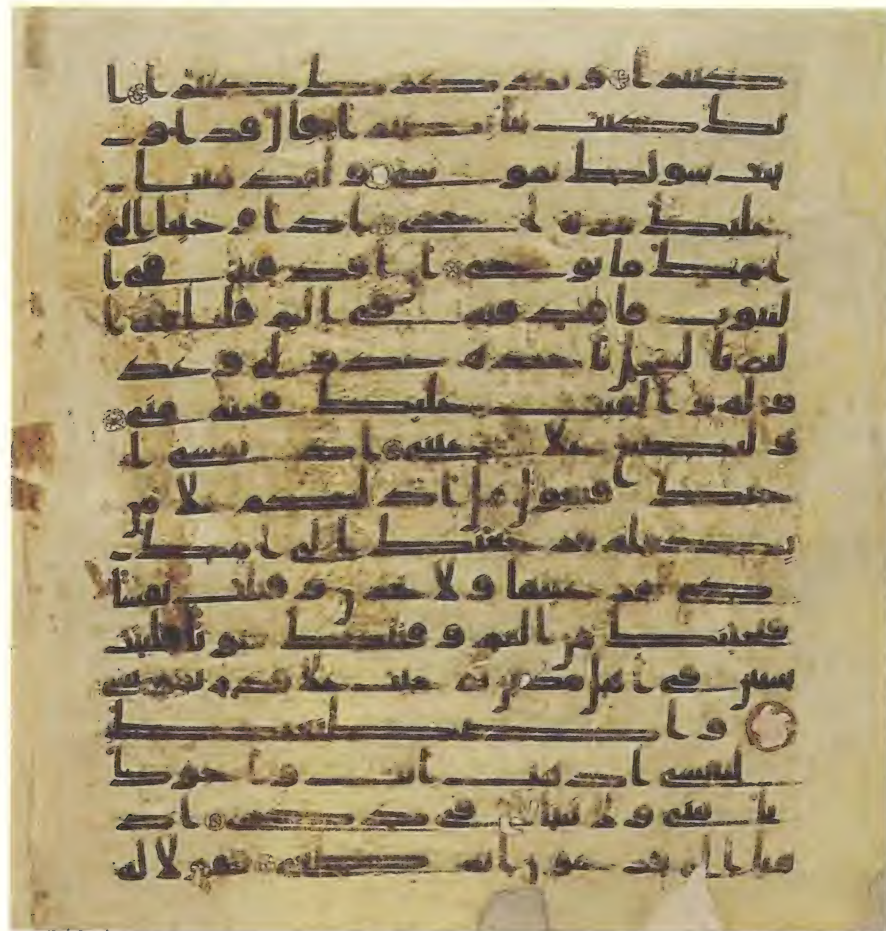 كثيرا ونذكرك كثيرا ا
نك كنت بنا بصيرا قال قد او
تيت سولك يموسى ولقد مننا
عليك مرة اخرى اذ اوحينا الى
امك ما يوحى ان اقذفيه في ا
لتبوت فاقذفيه في اليم فليلقه ا
ليم بالساحل ياخذه عدو لي وعد
و له والقيت عليك محبة مني
ولتصنع على عيني اذ تمشي ا
ختك فتقول هل ادلكم على من
يكفله فرجعنك الى امك
كي تقر عينها ولا تحزن وقتلت نفسا
فنجينك من الغم وفتنك فتونا فلبثت
سنين في اهل مدين ثم جئت على قدر يموسى
واصطنعتك
لنفسي اذهب انت واخوك
بايتي ولا تنيا في ذكري اذ
هبا الى فرعون انه طغى فقولا له